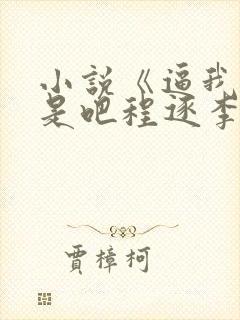 小説《逼我
是吧程逐李
賈樟柯